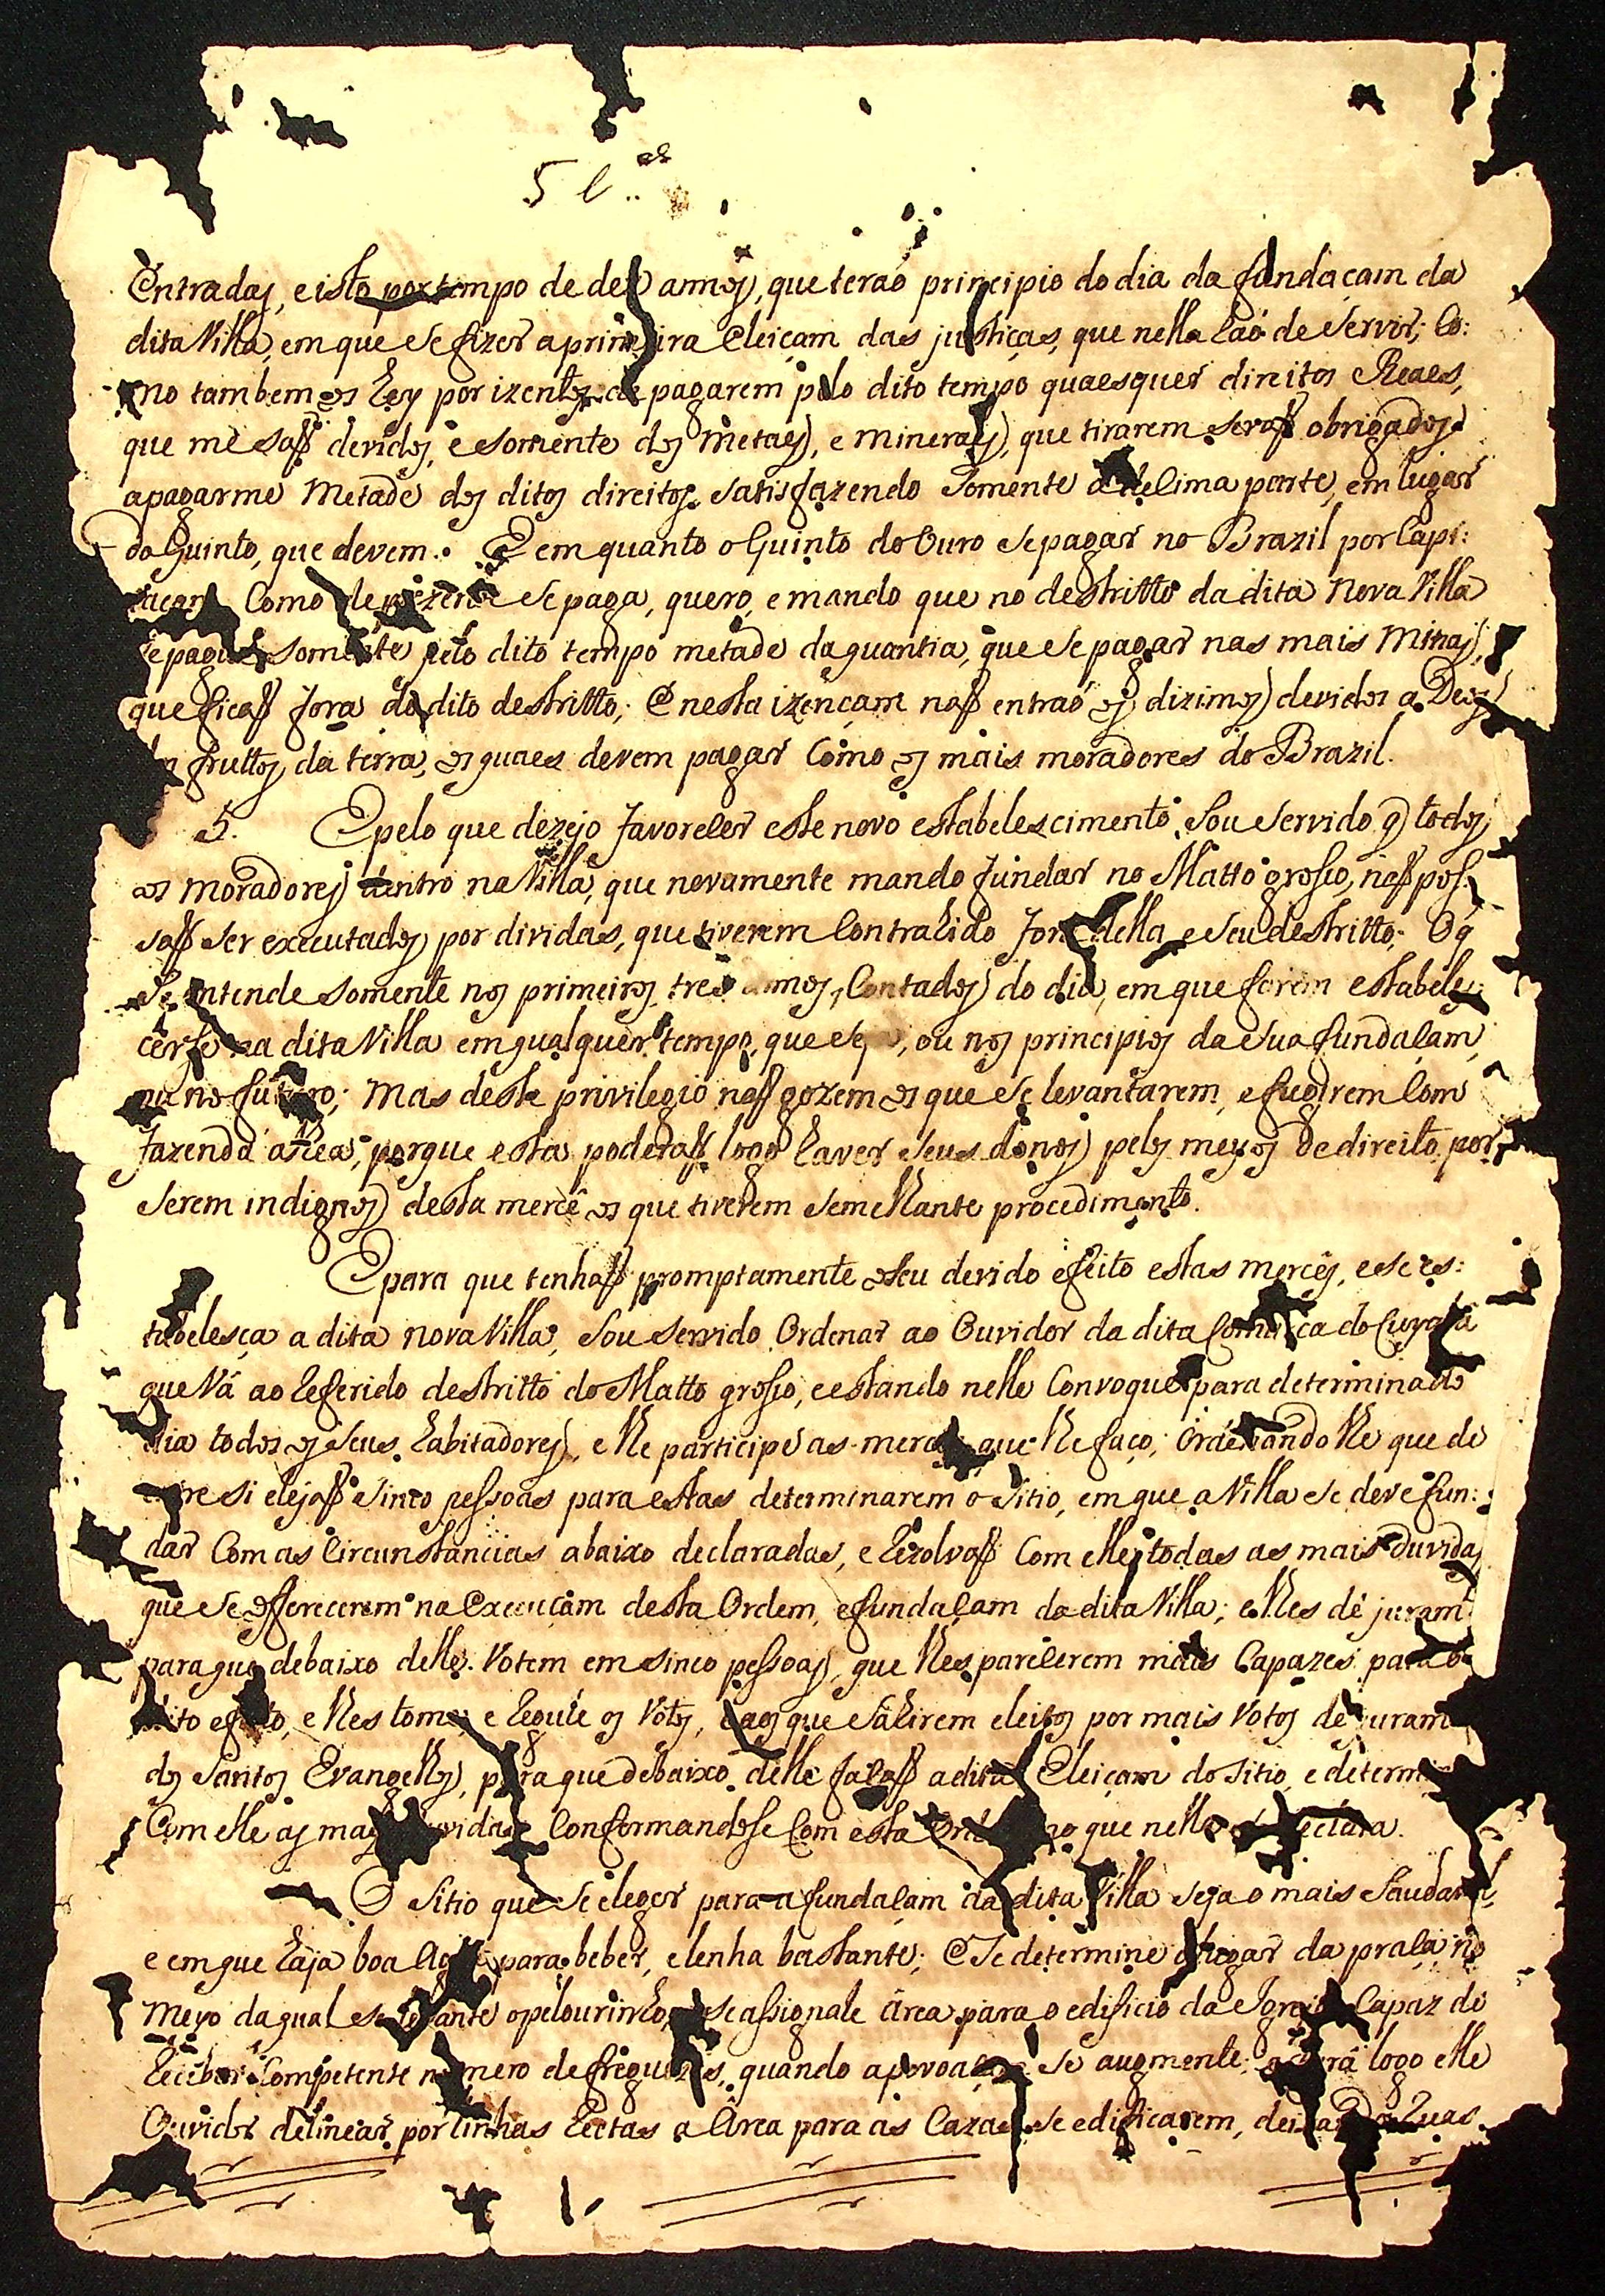 5 l..
Entradas, e isto por tempo de des annos, que teraõ principio do dia da fundaçam da
dita Villa, em que se fizer a primeira Eleiçam das justiças, que nella haõ de servir; Co:
mo tambem os hey por izentos de pagarem pelo dito tempo quaesquer direitos Reaes,
que me saõ devidos, e somente dos Metaes, e mineraes, que tirarem seraõ obrigados
a pagarme Metade dos ditos direitos satisfazendo somente a decima parte, em lugar
do Quinto, que devem. E em quanto o Quinto do Ouro se pagar no Brazil por Capi:
taçam Como de prezente se paga, quero, e mando que no destritto da dita Nova Villa
se pague somente pelo dito tempo metade da quantia, que se pagar nas mais Minas,
que ficaõ fora do dito destritto; E nesta izençam naõ entraõ os dizimos devidos a Deos
fruttos da terra, os quaes devem pagar Como os mais moradores do Brazil.
5. E pelo que dezejo favorecer este novo estabelescimento, Sou servido q todos
os moradores dentro na Villa, que novamente mando fundar no Matto grosso, naõ pos:
saõ ser executados por dividas, que tiverem Contrahido fora della e seu destritto; O q
se entende somente nos primeiros tres annos, Contados do dia, em que forem estabele:
cerse na dita Villa em qualquer tempo, que seja, ou nos principios da sua fundaçam,
ou no futuro; Mas deste privilegio naõ gozem os que se levantarem, e fugirem Com
fazenda alhea, porque esta poderaõ logo haver seus donos pelos meyos de direito, por
serem indignos desta mercê os que tiverem semelhante procedimento.
E para que tenhaõ promptamente o seu devido efeito estas mercês, e se es:
tabelesça a dita nova Villa, Sou servido Ordenar ao Ouvidor da dita Comarca do Cuyabá
que Vá ao referido destritto do Matto grosso, e estando nelle Convoque para determinado
dia todos os seus habitadores, e lhe participe as merces que lhe faço; Ordenandolhe que de
entre si elejaõ sinco pessoas para estas determinarem o sitio, em que a Villa se deve fun:
dar Com as Circunstancias abaixo declaradas, e rezolvaõ Com elle todas as mais duvidas
que se offerecerem na execuçam desta Ordem, e fundaçam da dita Villa; e lhes dê juram
para que debaixo delle Votem em sinco pessoas, que lhes parecerem mais Capazes para o
dito efeito, e lhes tome, e regule os Votos, e aos que sahirem eleitos por mais Votos dê juram
dos Santos Evangelhos, para que debaixo delle façaõ a dita Eleiçam do sitio, e determi
Com elle as mais duvidas Conformandose Com esta Ordem no que nella se declara.
O Sitio que se eleger para a fundaçam da dita Villa seja o mais saudavel,
e em que haja boa Agua para beber, e lenha bastante; E se determine o lugar da praça, no
meyo da qual se levante o pelourinho, e se assignale Área para o edificio da Igreja Capaz de
receber Competente numero de freguezes, quando a povoaçam se augmente; e fará logo elle
Ouvidor delinear por linhas rectas a Área para as Cazas se edificarem, deixando ruas